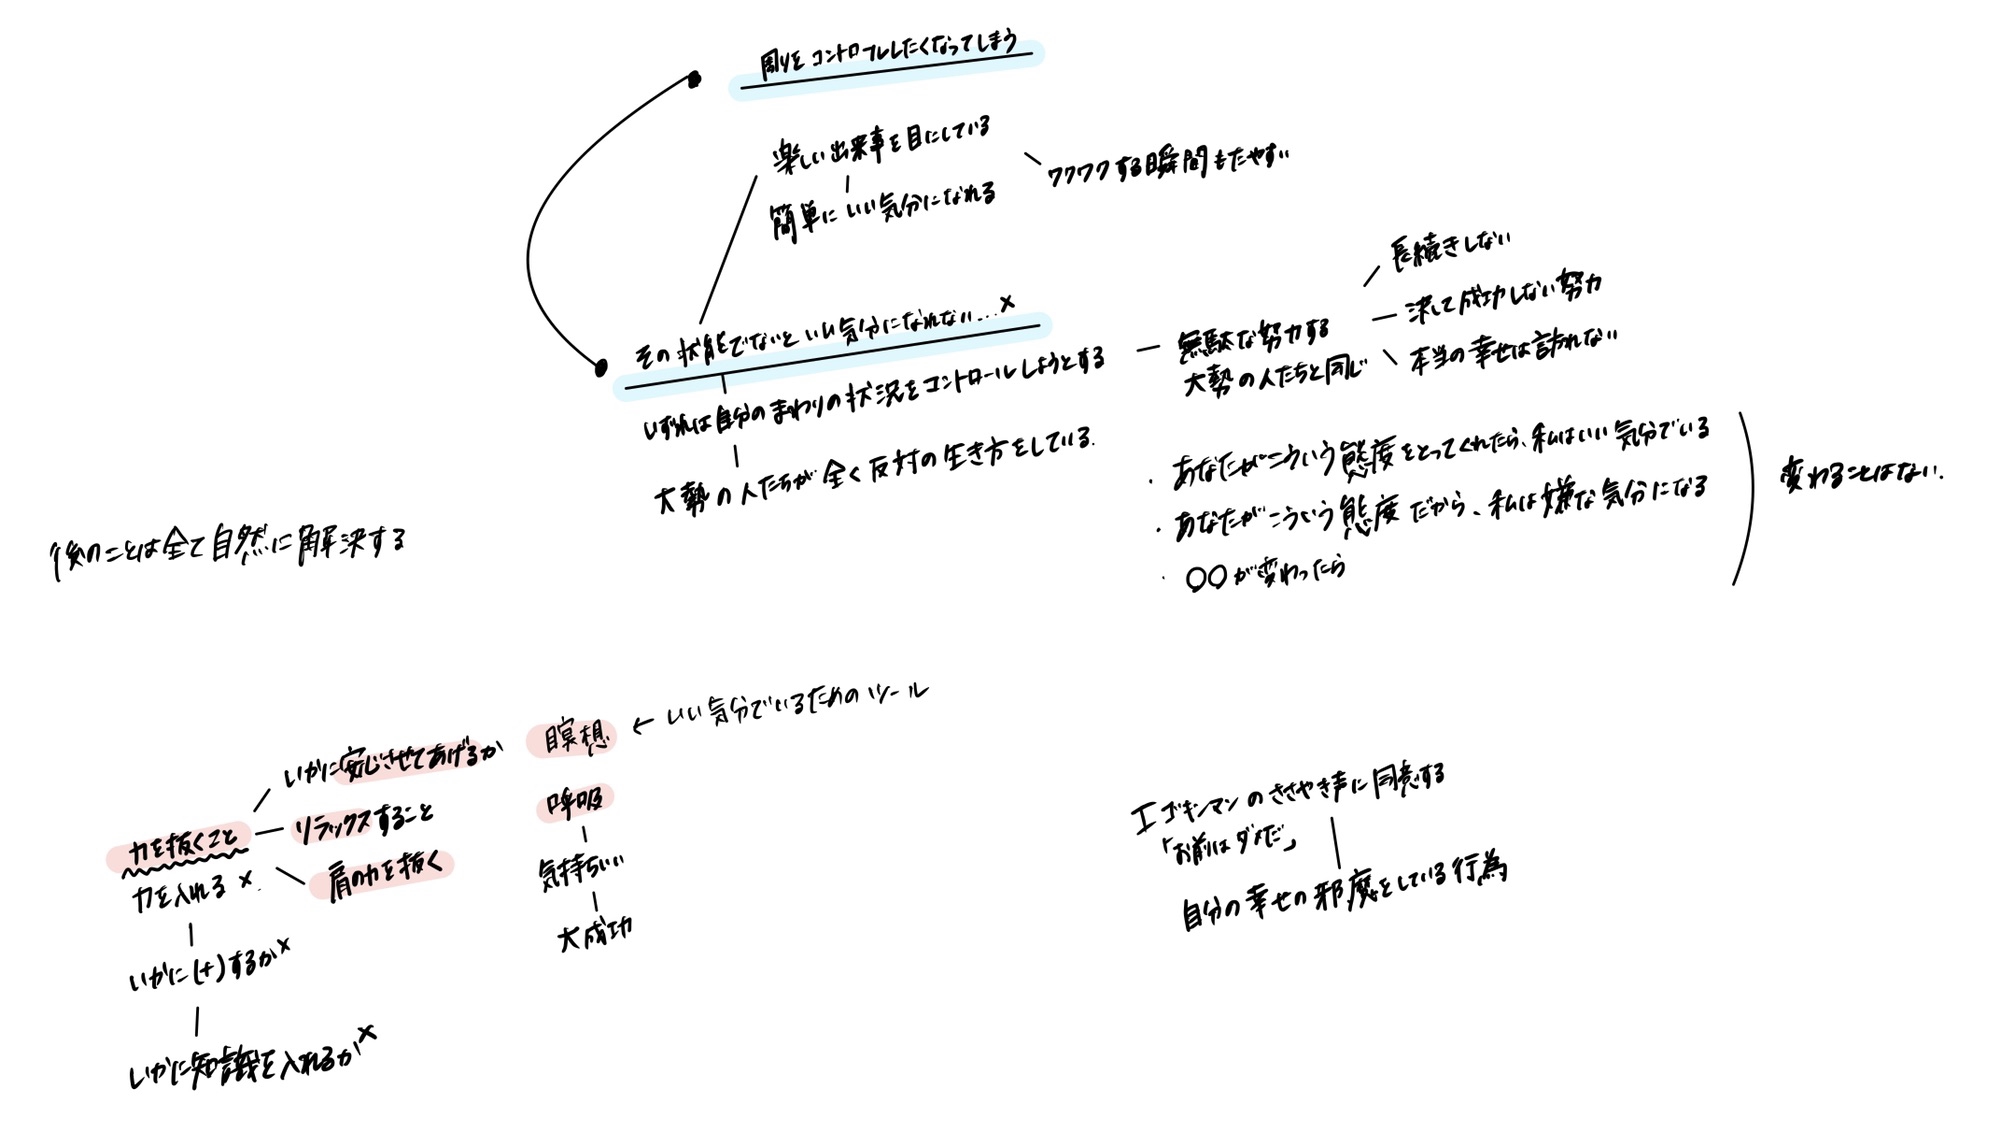 周りをコントロールしたくなってしまう
楽しい出来事を目にしている
ワクワクする瞬間もたやすい
簡単にいい気分になれる
その状態でないといい気分になれない…×
いずれは自分のまわりの状況をコントロールしようとする
大勢の人たちが全く反対の生き方をしている.
無駄な努力する
大勢の人たちと同じ
長続きしない
決して成功しない努力
本当の幸せは訪れない
・あなたがこういう態度をとってくれたら、私はいい気分でいる
・あなたがこういう態度だから、私は嫌な気分になる
・〇〇が変わったら
変わることはない.
後のことは全て自然に解決する
いかに安心させてあげるか
瞑想 ← いい気分でいるためのツール
力を抜くこと
リラックスすること
肩の力を抜く
呼吸
気持ちいい
大成功
力を入れる ×
いかに(+)するか×
いかに知識を入れるか×
エゴキンマンのささやき声に同意する
「お前はダメだ」
自分の幸せの邪魔をしている行為